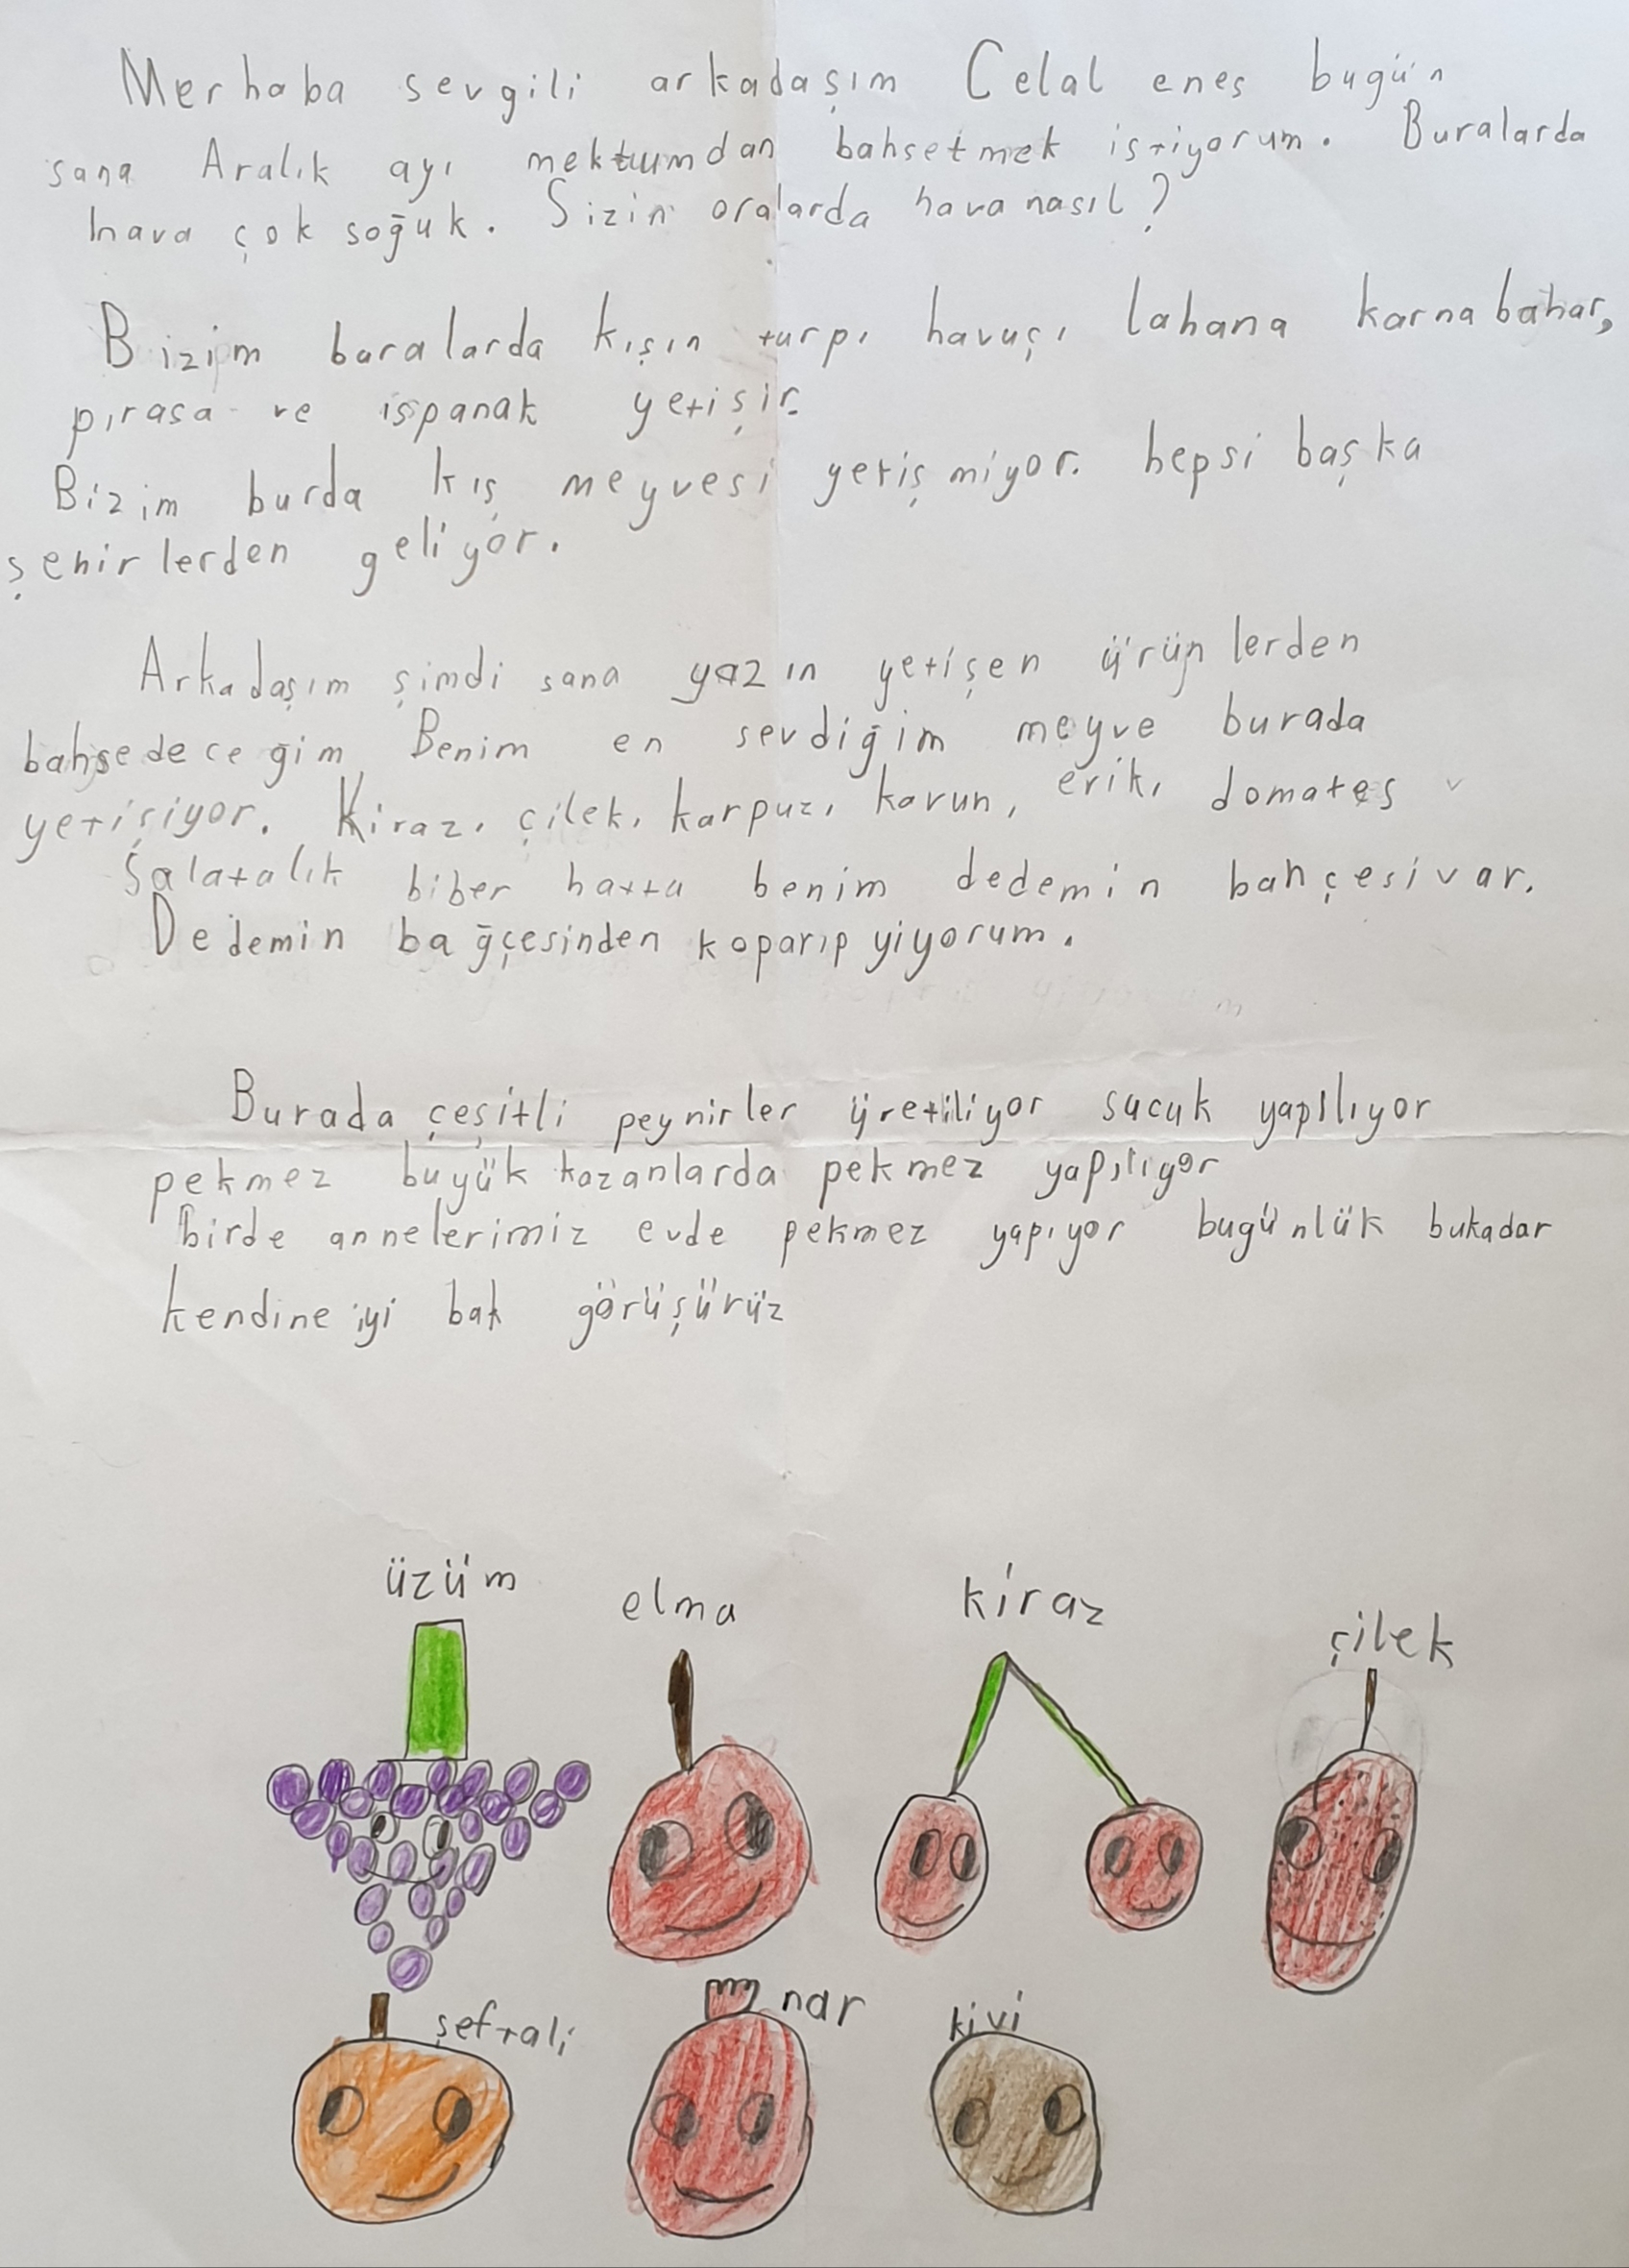 Merhaba sevgili arkadaşım Celal enes bugün
sana Aralık ayı mektumdan bahsetmek istiyorum. Buralarda
hava çok soğuk. Sizin oralarda hava nasıl?
Bizim buralarda kışın turp, havuç, lahana karnabahar,
pırasa ve ispanak yetişir.
Bizim burda kış meyvesi yetişmiyor. hepsi başka
şehirlerden geliyor.
Arkadaşım şimdi sana yazın yetişen ürünlerden
bahsedeceğim Benim en sevdiğim meyve burada
yetişiyor. Kiraz, çilek, karpuz, kavun, erik, domates
Salatalık biber hatta benim dedemin bahçesi var.
Dedemin bağçesinden koparıp yiyorum.
Burada çeşitli peynirler üretiliyor sucuk yapılıyor
pekmez büyük kazanlarda pekmez yapılıyor
birde annelerimiz evde pekmez yapıyor bugünlük bukadar
kendine iyi bak görüşürüz
üzüm
elma
kiraz
çilek
şeftali
nar
kivi